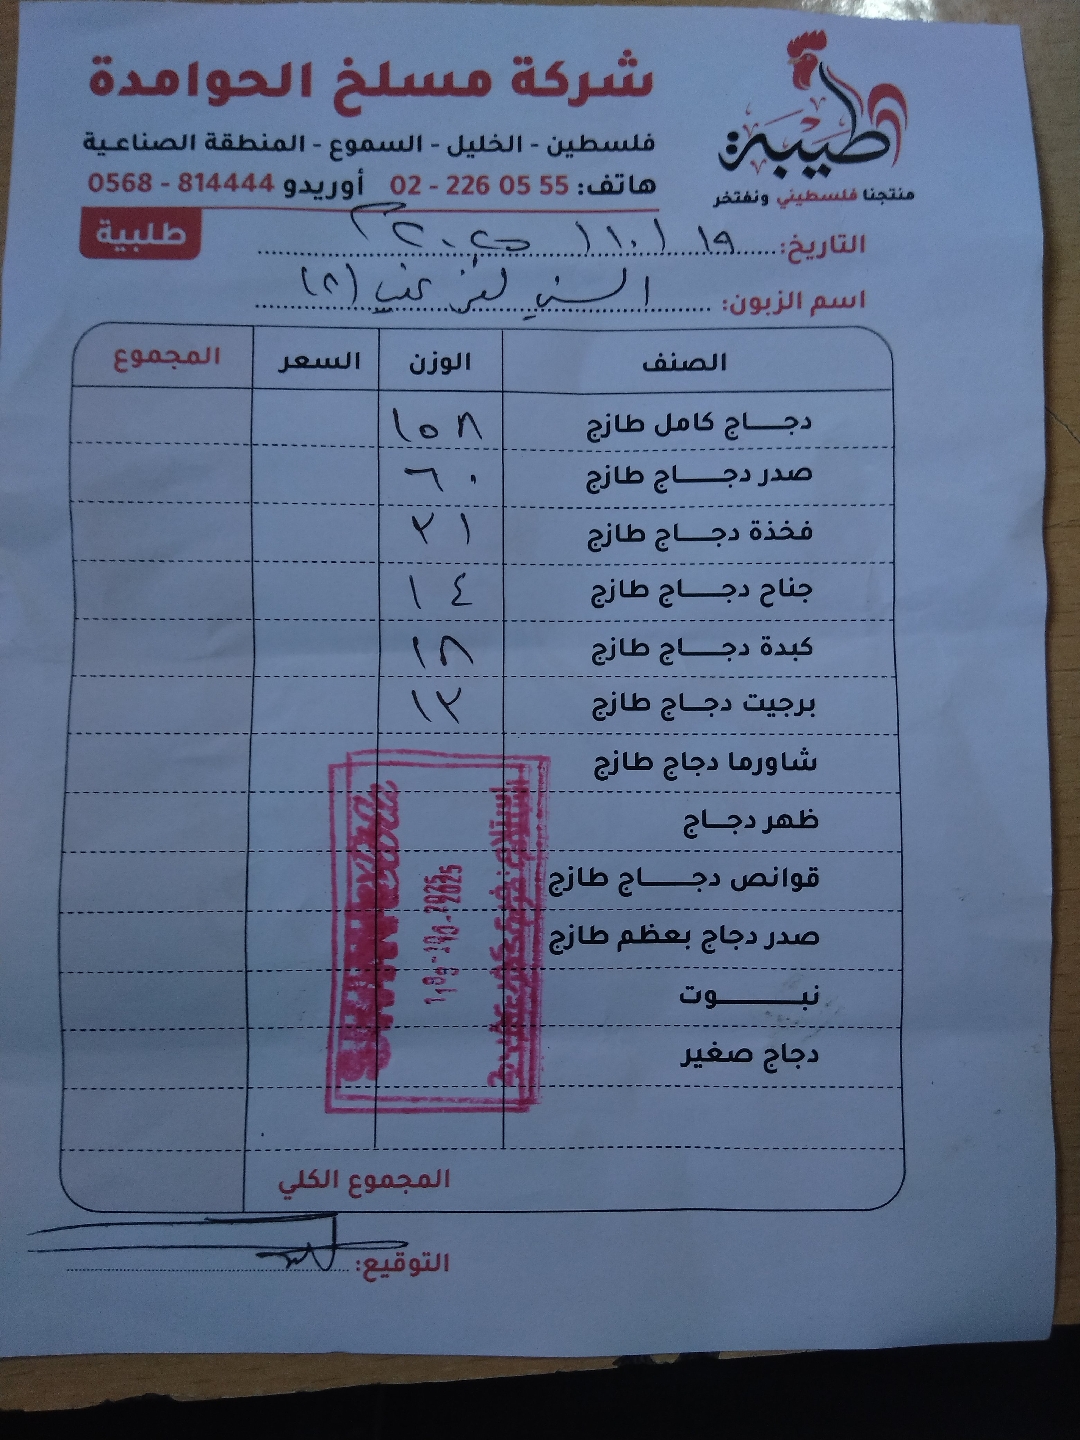 شركة مسلخ الحوامدة
فلسطين - الخليل - السموع - المنطقة الصناعية
هاتف: 02 - 226 05 55 أوريدو 0568 - 814444
طيبة
منتجنا فلسطيني ونفتخر
طلبية
التاريخ: ١٩ / ١٠ /
اسم الزبون: (٢)
الصنف الوزن السعر المجموع
دجاج كامل طازج ١٥٨
صدر دجاج طازج ٦٠
فخذة دجاج طازج ٢١
جناح دجاج طازج ١٤
كبدة دجاج طازج ١٨
برجيت دجاج طازج ١٢
شاورما دجاج طازج
ظهر دجاج
قوانص دجاج طازج
صدر دجاج بعظم طازج
نبوت
دجاج صغير
المجموع الكلي
التوقيع: